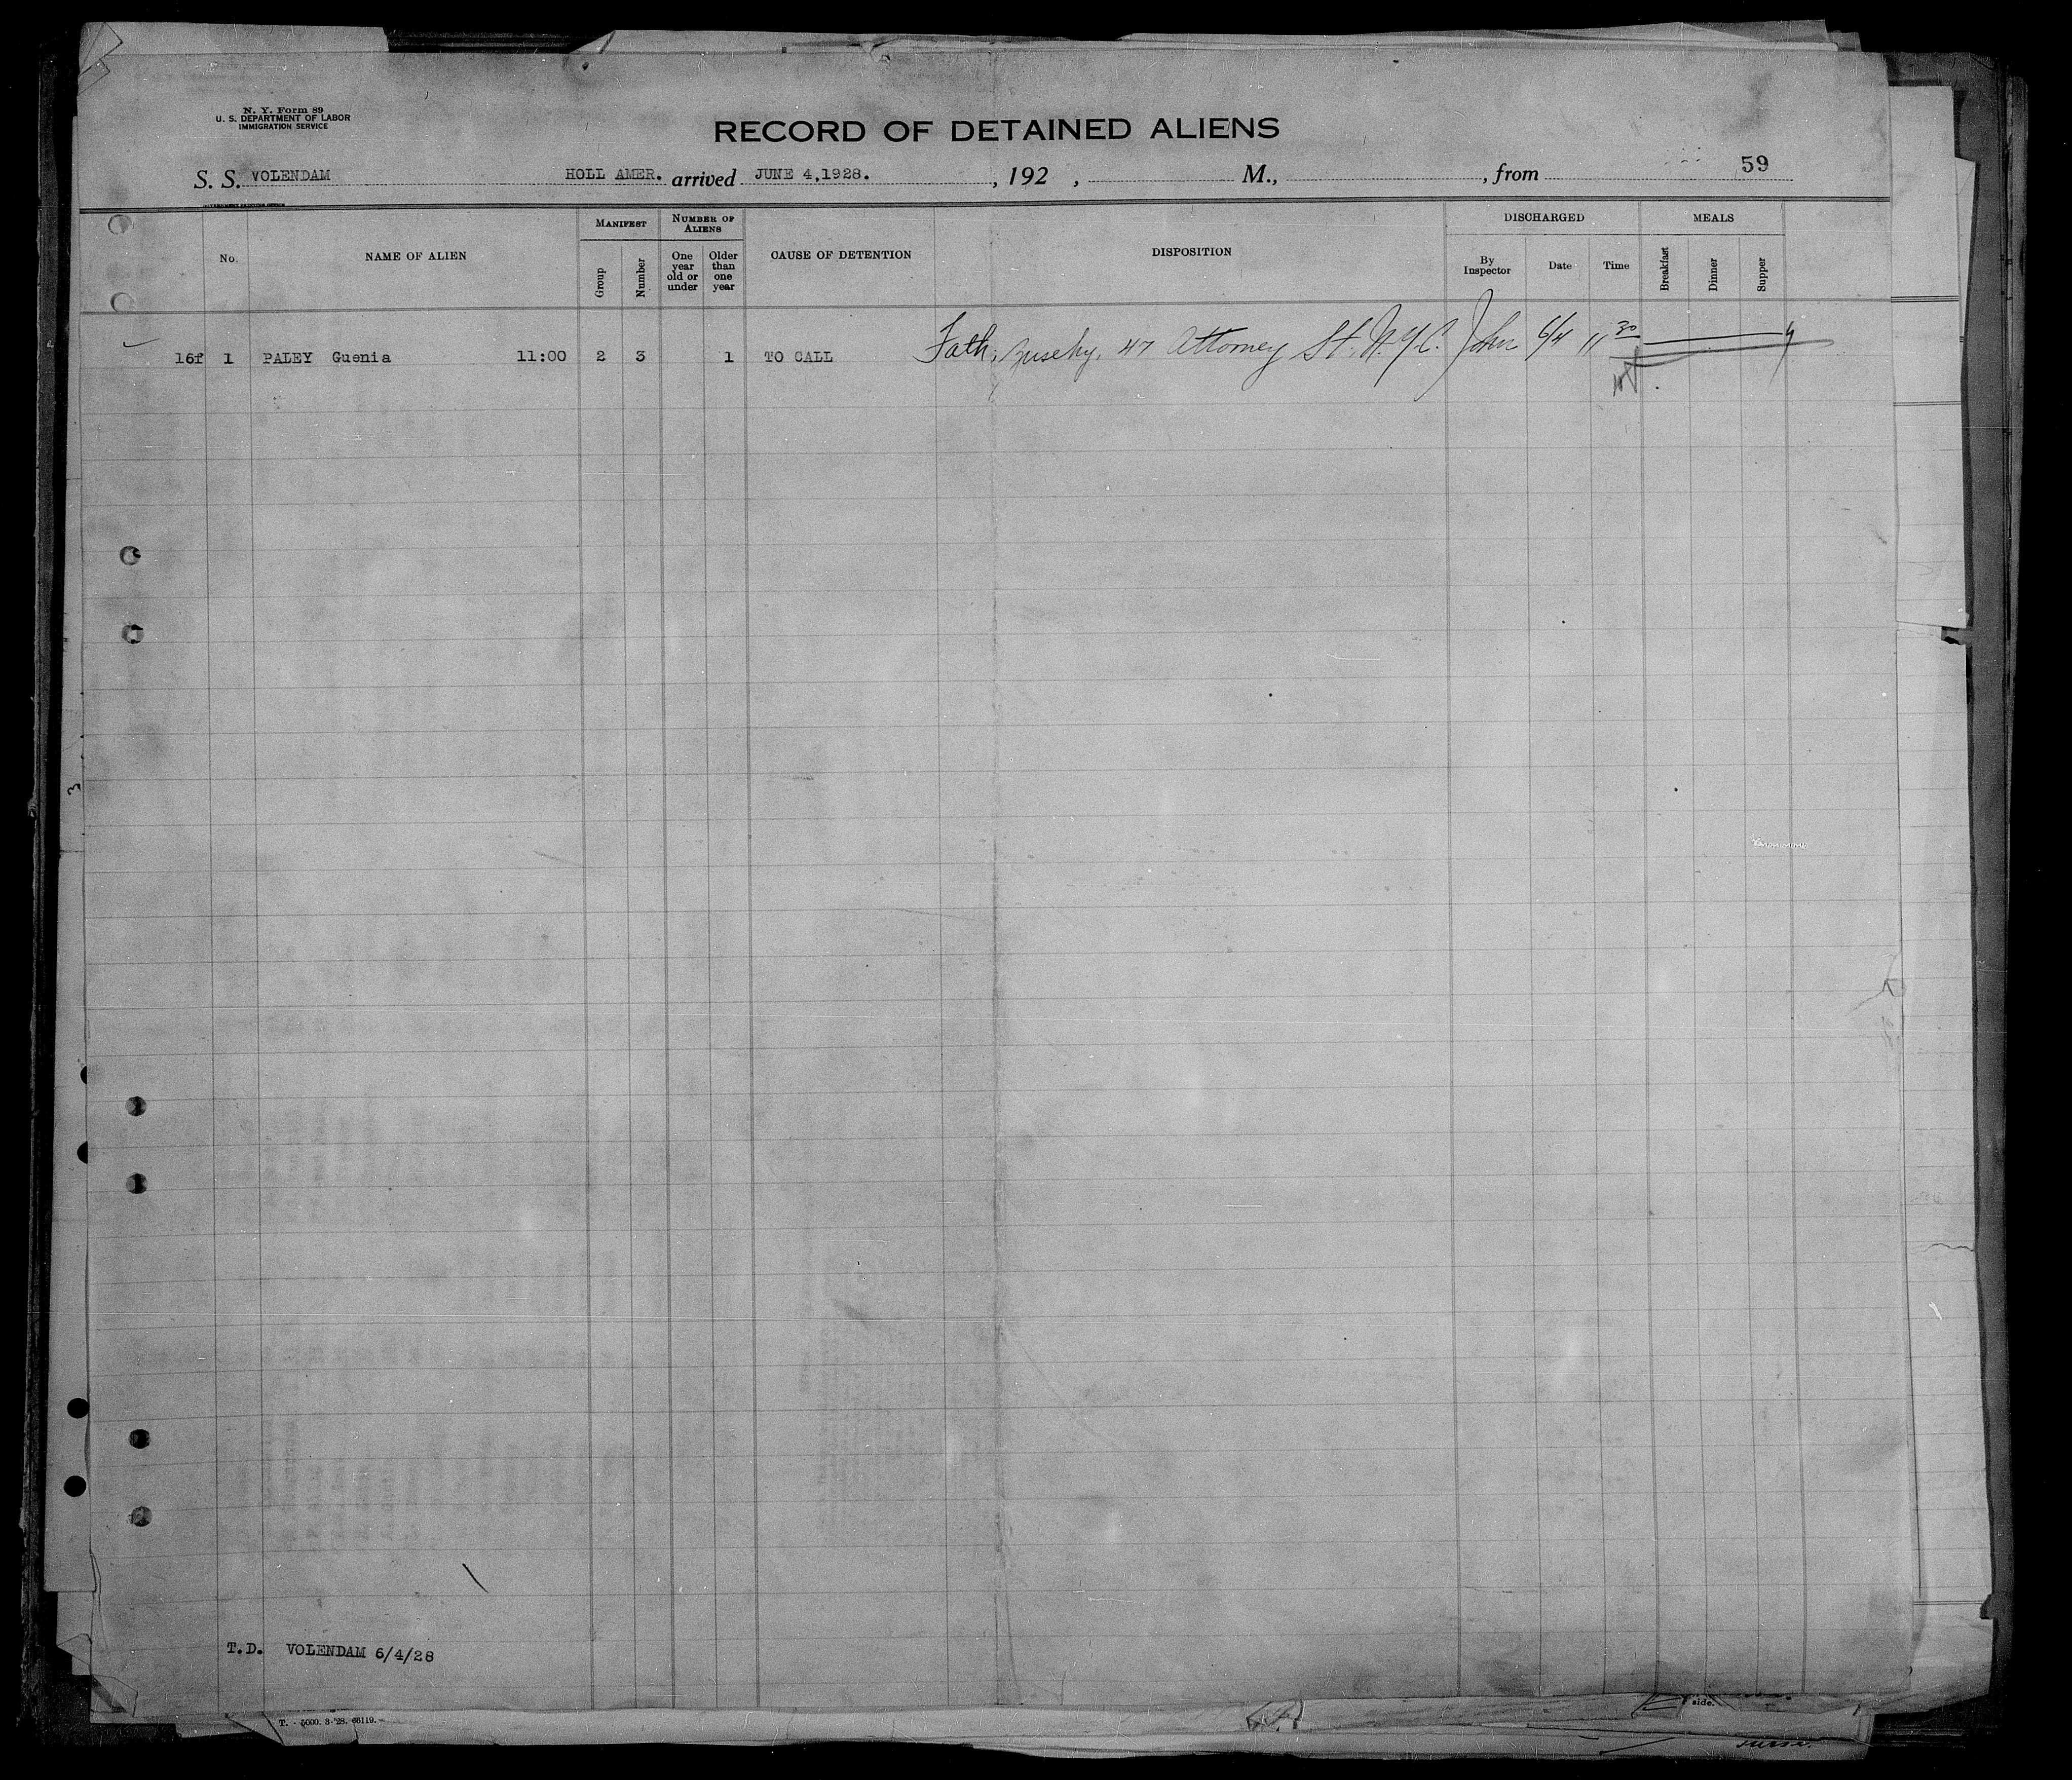 N. Y. Form 89
U. S. DEPARTMENT OF LABOR
IMMIGRATION SERVICE
RECORD OF DETAINED ALIENS
59
S. S. VOLENDAM HOLL AMER. arrived JUNE 4,1928. , 192 , M., , from
GOVERNMENT PRINTING OFFICE
No. NAME OF ALIEN MANIFEST Group Number NUMBER OF ALIENS One year old or under Older than one year CAUSE OF DETENTION DISPOSITION DISCHARGED By Inspector Date Time MEALS Breakfast Dinner Supper
16f 1 PALEY Guenia 11:00 2 3 1 TO CALL Fath, 47 Attorney St. N.Y.C. 6/4 11 30
3
T.D. VOLENDAM 6/4/28
side.
T. - 5000. 3-'28. 66119.